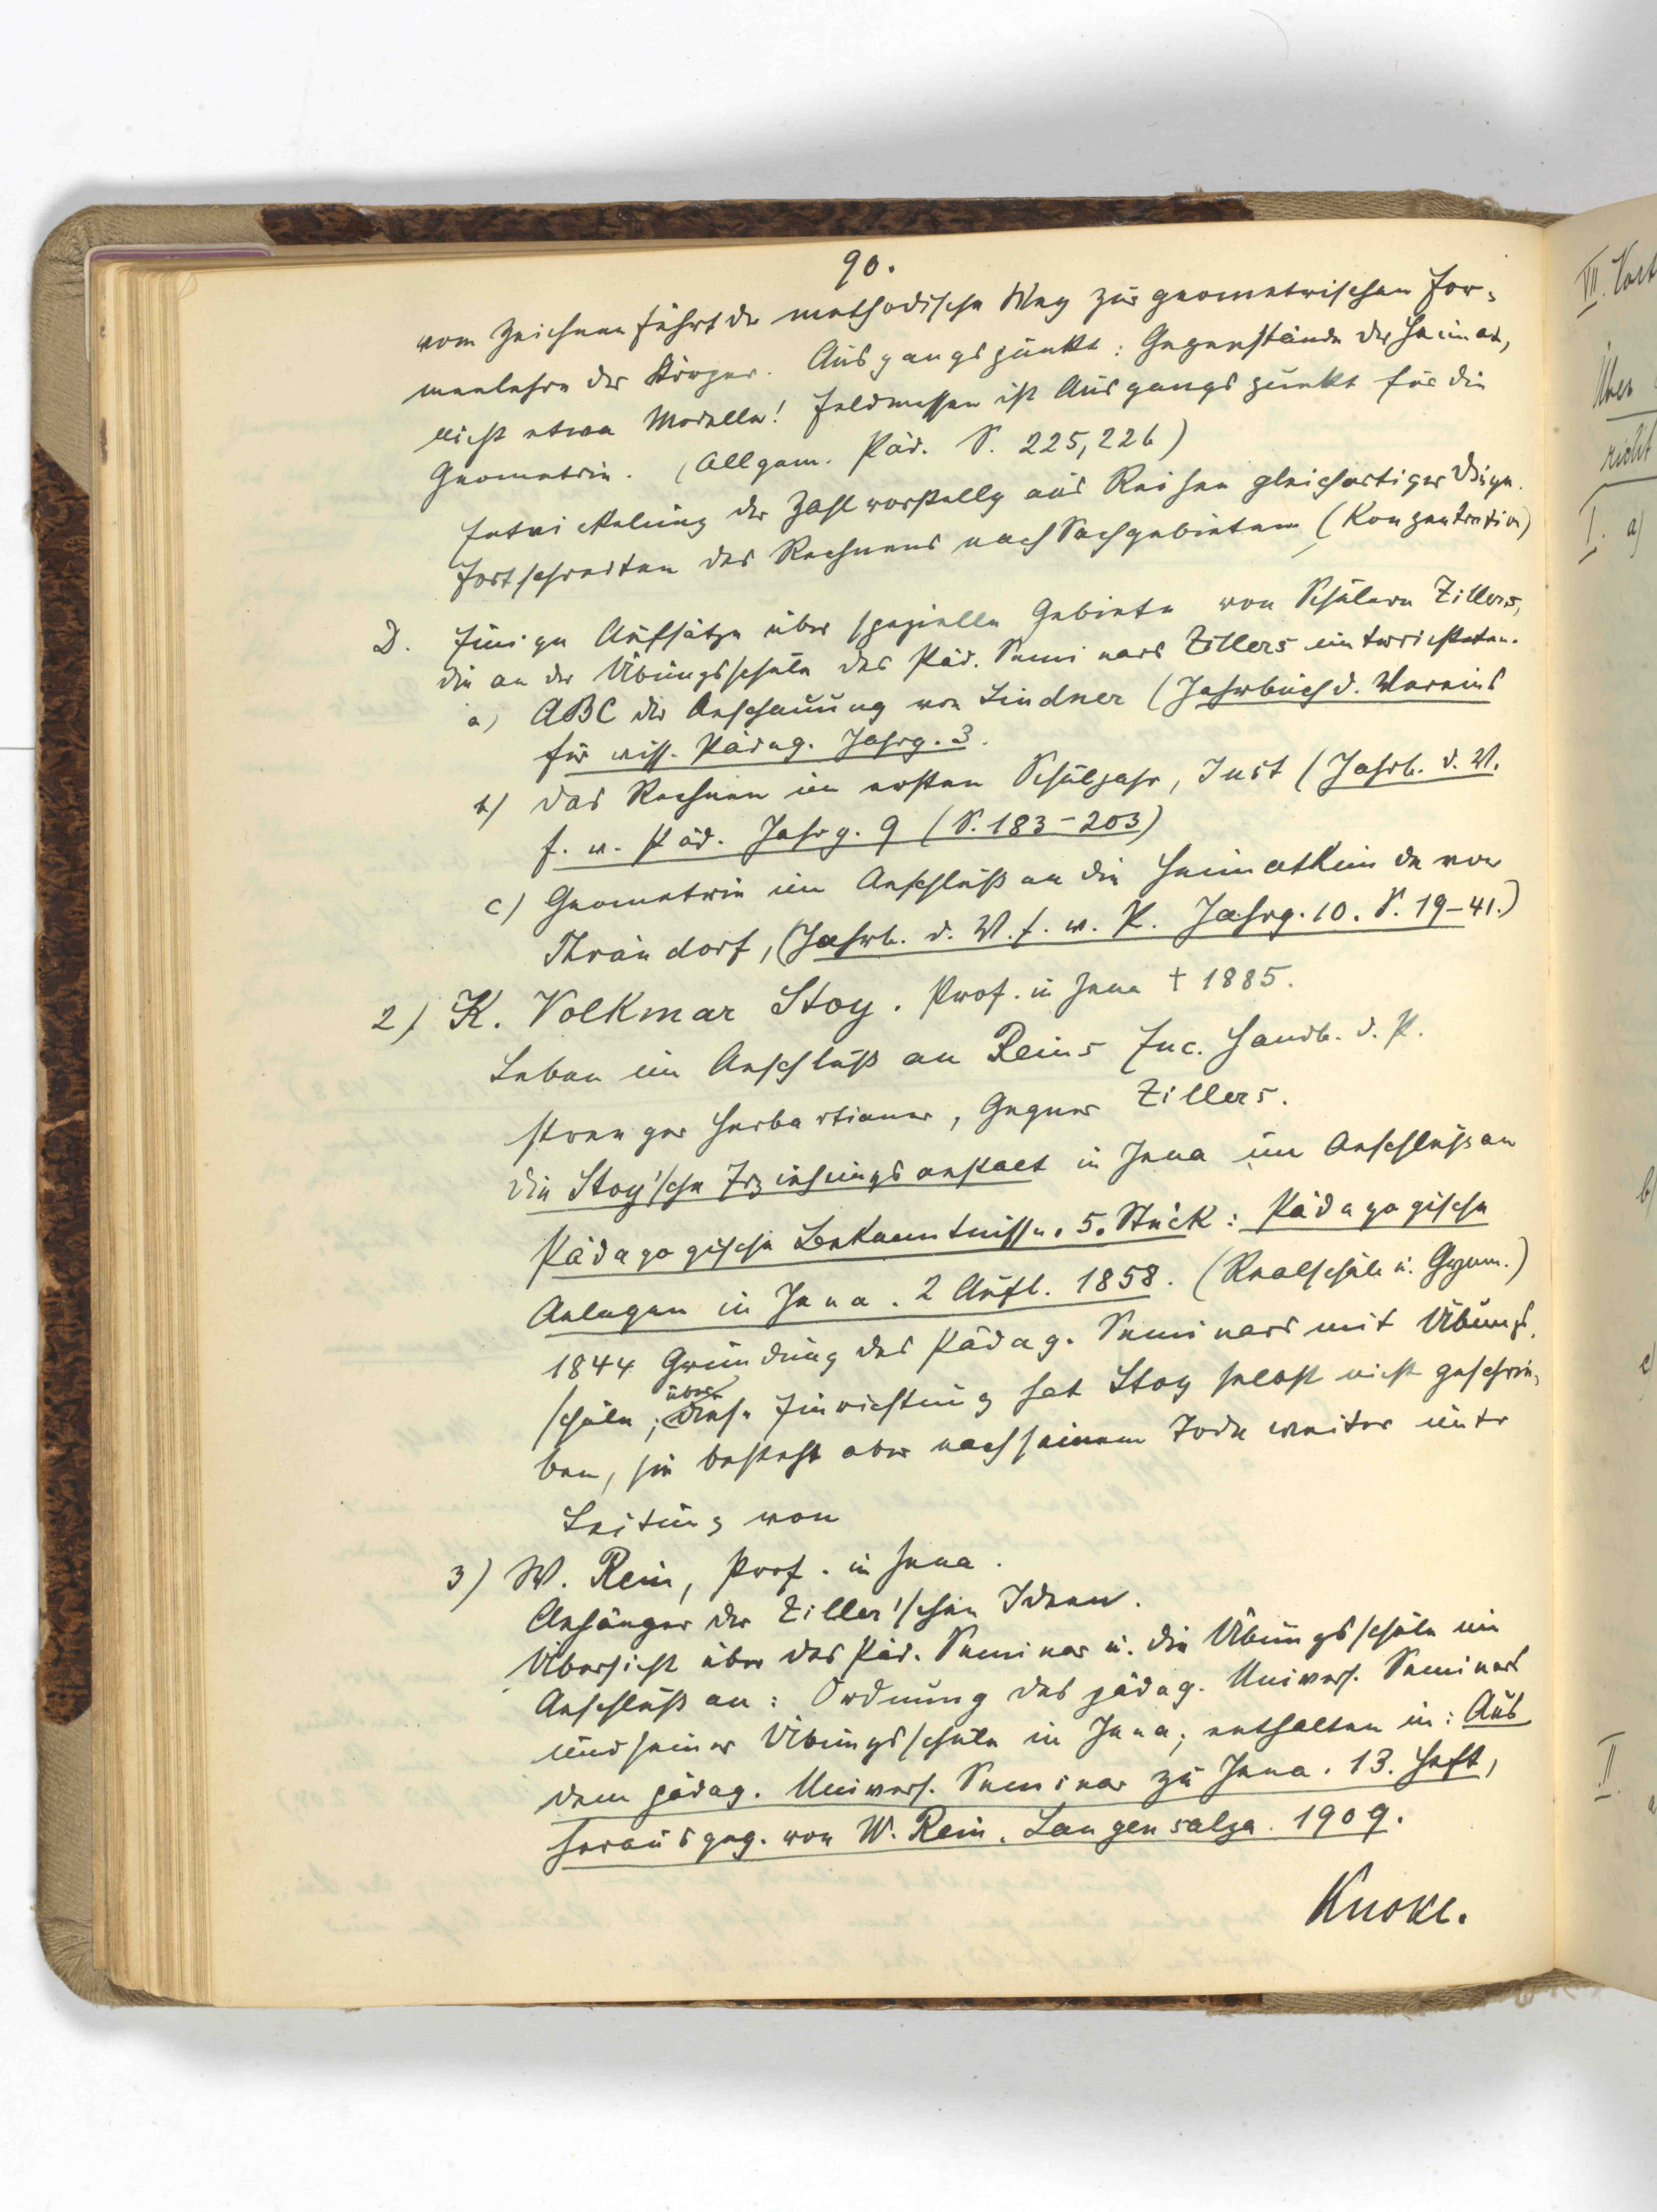 90.
vom Zeichnen führt der methodische Weg zur geometrischen For-
menlehre der Körper. Ausgangspunkt: Gegenstände der Heimat,
nicht etwa Modelle! Feldmessen ist Ausgangspunkt für die
Geometrie. (Allgem. Päd. S. 225, 226)
Entwickelung der Zahlvorstellg aus Reihen gleichartiger Dinge.
Fortschreiten des Rechnens nach Sachgebieten (Konzentration)
D. Einige Aufsätze über spezielle Gebiete von Schülern Zillers,
die an der Übungsschule des Päd. Seminars Zillers unterrichteten.
a) ABC der Anschauung von Lindner (Jahrbuch d. Vereins
für wiss. Pädag. Jahrg. 3.
b) Das Rechnen im ersten Schuljahr, Just (Jahrb. d. V.
f. w. Päd. Jahrg. 9 (S. 183-203)
c) Geometrie im Anschluß an die Heimatkunde von
Thrändorf, (Jahrb. d. V. f. w. P. Jahrg. 10. S. 19-41.)
2) K. Volkmar Stoy. Prof. in Jena † 1885.
Leben im Anschluß an Reins Enc. Handb. d. P.
strenger Herbartianer, Gegner Zillers.
Die Stoy'sche Erziehungsanstalt in Jena im Anschluß an
Pädagogische Bekenntnisse. 5. Stück: Pädagogische
Anlagen in Jena. 2 Aufl. 1858. (Realschule u. Gymn.)
1844 Gründung des Pädag. Seminars mit Übungs-
schule; über diese Einrichtung hat Stoy selbst nicht geschrie-
ben, sie besteht aber nach seinem Tode weiter unter
Leitung von
3) W. Rein, Prof. in Jena.
Anhänger der Ziller'schen Ideen.
Übersicht über das Päd. Seminar u. die Übungsschule im
Anschluß an: Ordnung des pädag. Univers. Seminars
und seiner Übungsschule in Jena; enthalten in: Aus
dem pädag. Univers. Seminar zu Jena. 13. Heft,
herausgeg. von W. Rein. Langensalza. 1909.
Knoke.
VII.
Über
richt
I. a)
b)
c)
II.